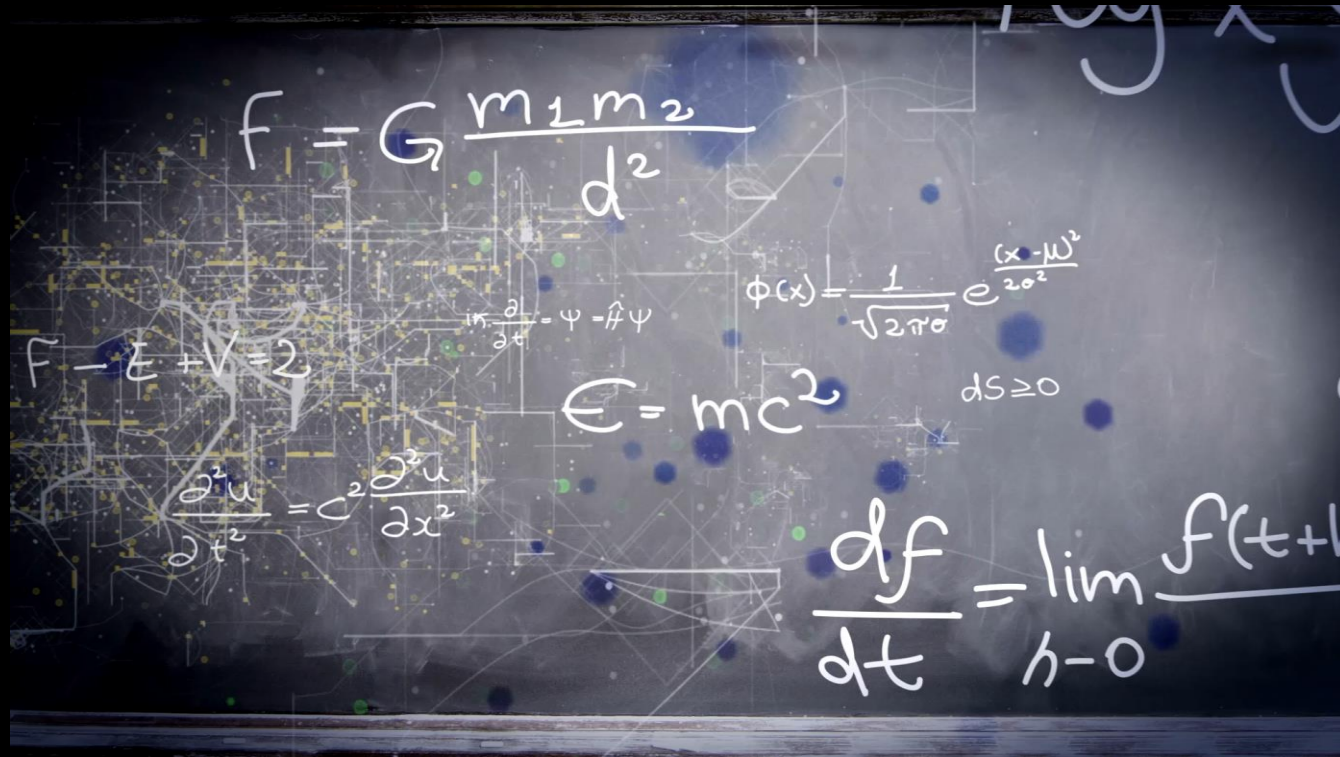 log x y
F = G m1 m2 / d²
ϕ(x) = 1 / √2πσ e (x-μ)² / 2σ²
iħ ∂ / ∂t = Ψ = Ĥ Ψ
F - E + V = 2
E = mc²
dS ≥ 0
∂²u / ∂t² = c² ∂²u / ∂x²
df / dt = lim h-0 f(t+h